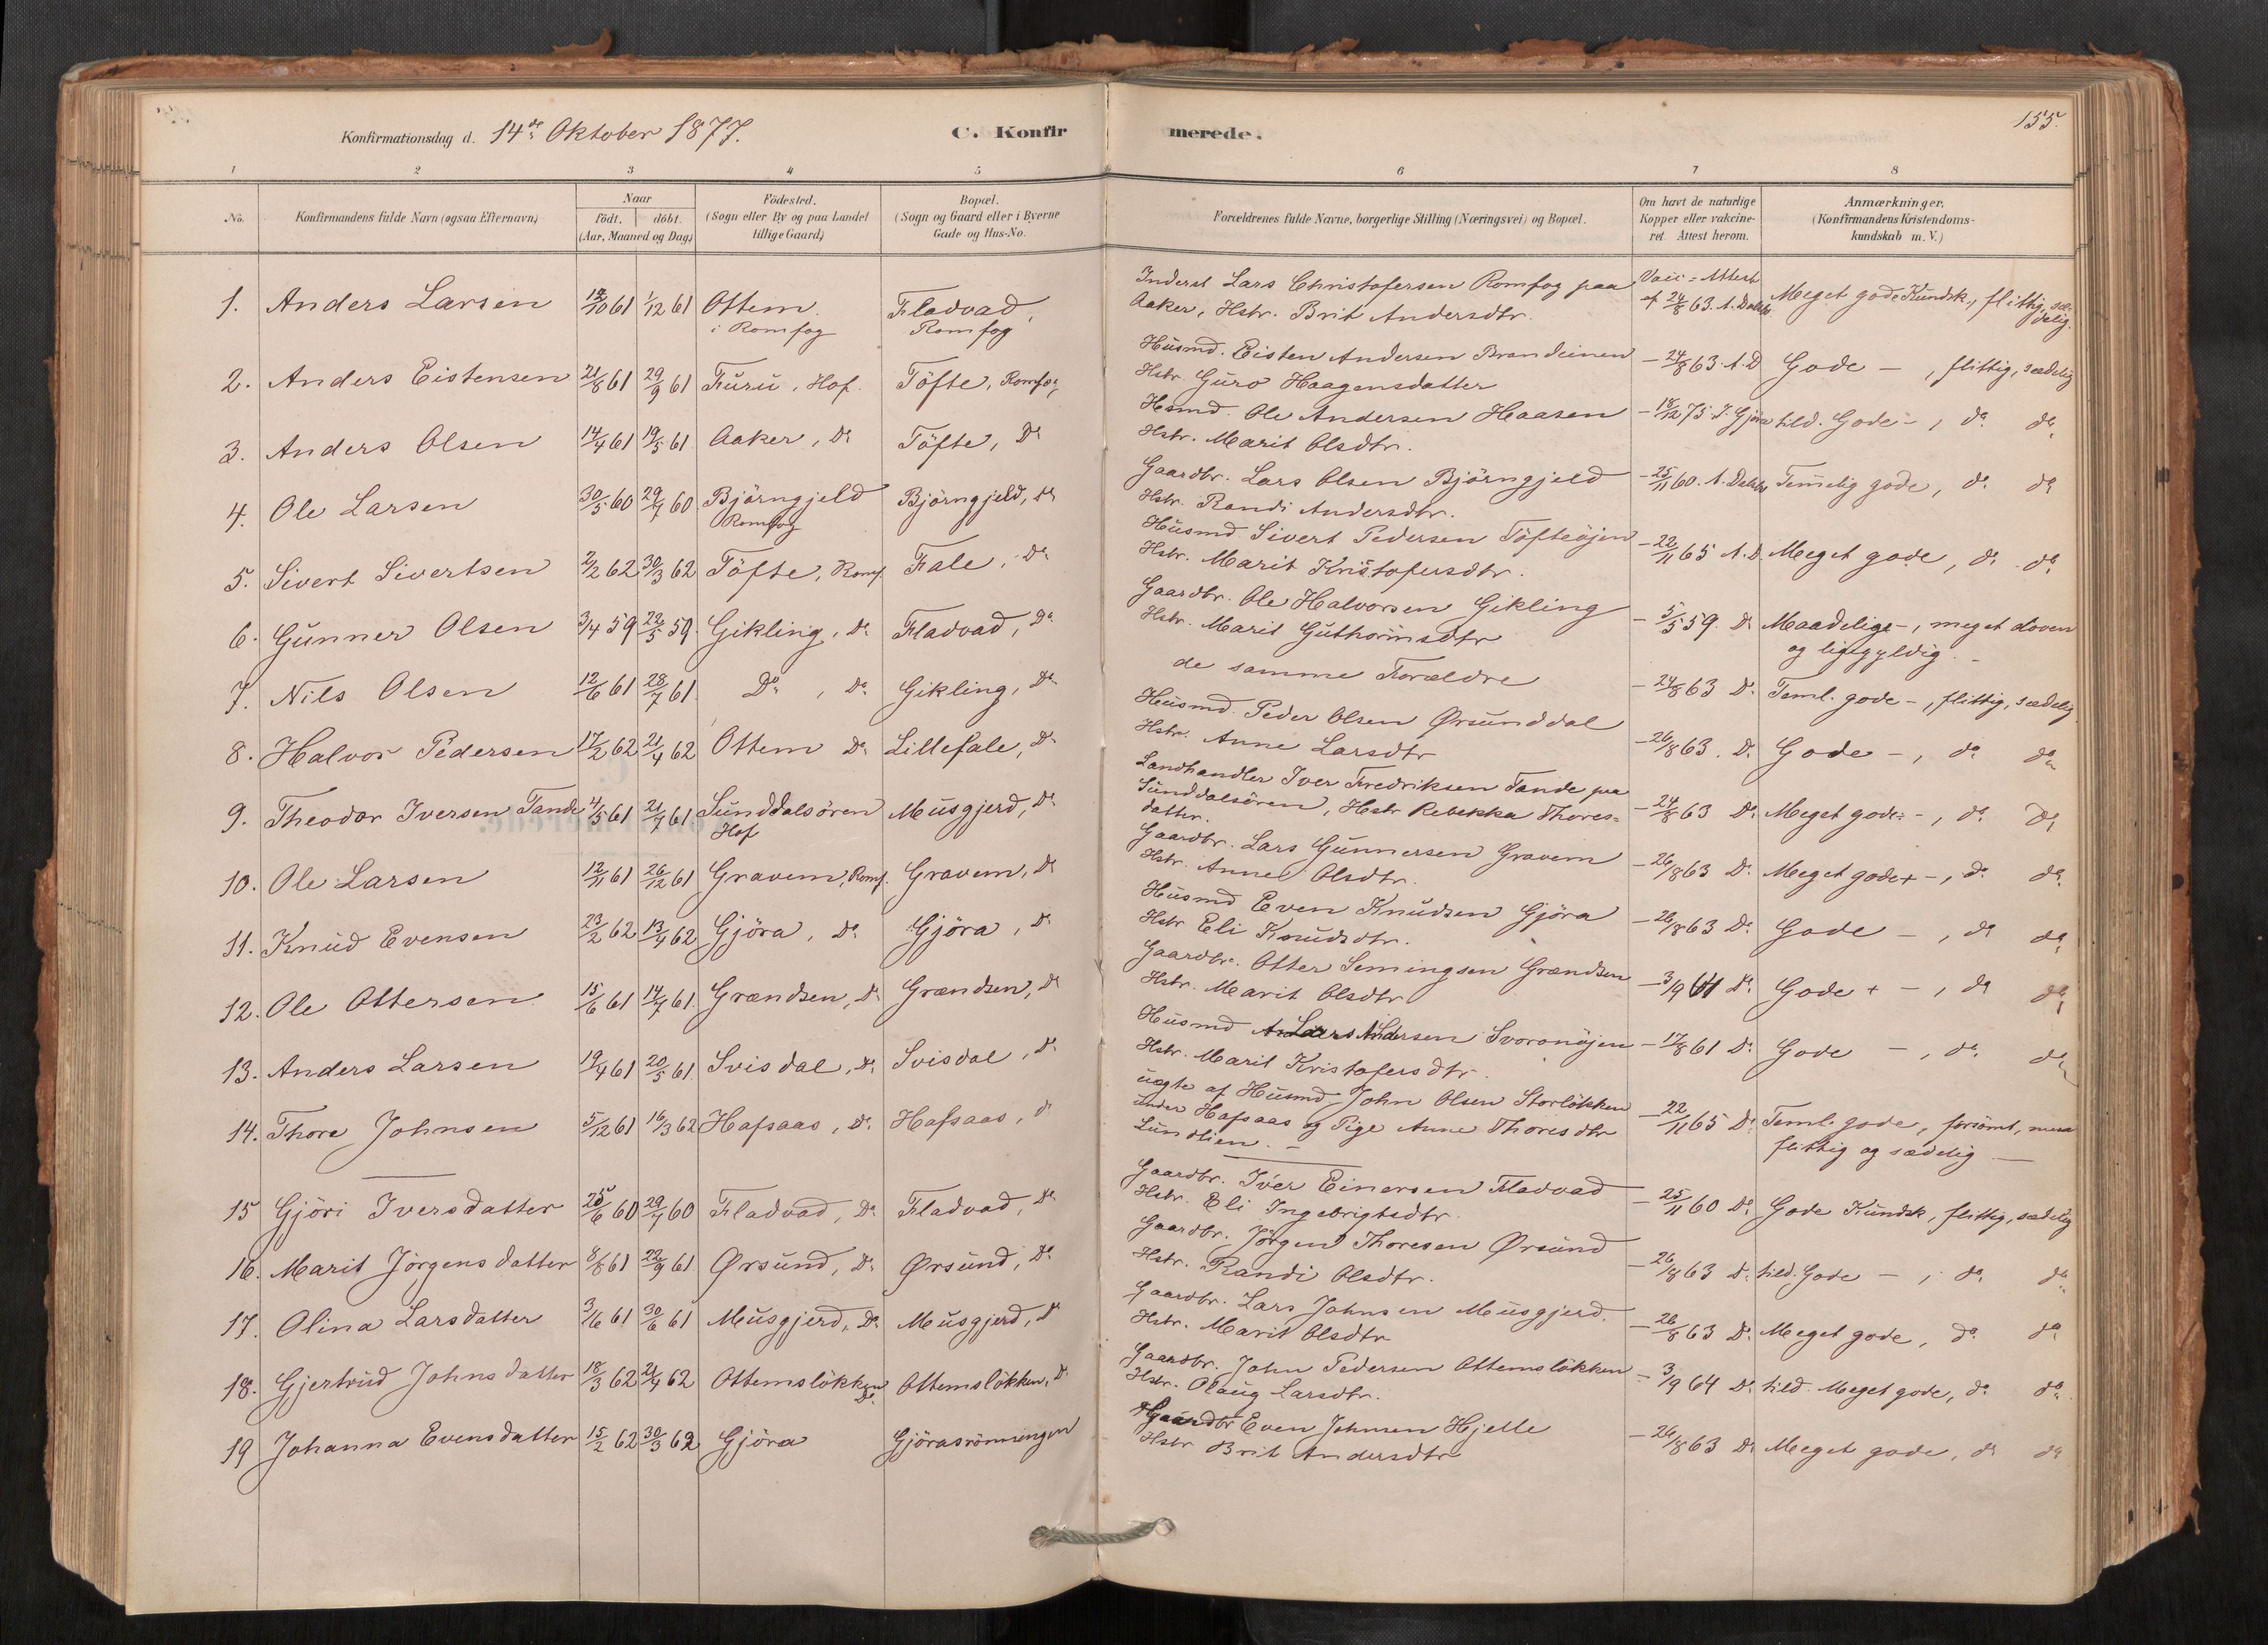 Konfirmationsdag d. 14de Oktober 1877.
C. Konfirmerede.
155.
1 2 3 4 5 6 7 8
No.
Konfirmandens fulde Navn (ogsaa Efternavn)
Naar
födt. döbt.
(Aar, Maaned og Dag)
Födested.
(Sogn eller By og paa Landet
tillige Gaard)
Bopæl.
(Sogn og Gaard eller i Byerne
Gade og Hus-No.
Forældrenes fulde Navne, borgerlige Stilling (Næringsvei) og Bopæl.
Om havt de naturlige
Kopper eller vakcine-
ret. Attest herom.
Anmærkninger.
(Konfirmandens Kristendoms-
kundskab m. V.)
1. Anders Larsen 19/10 61 1/12 61 Ottem i Romfog Fladvad, Romfog
Inderst Lars Christofersen Romfog paa
Aaker, Hstr. Brit Andersdtr.
Vacc-Attest
af 24/8 63. A. Meget gode Kundsk., flittig, sædelig.
2. Anders Eistensen 21/8 61 29/9 61 Furu, Hof. Töfte, Romfog
Husmd. Eisten Andersen Brandeinen
Hstr. Guro Haagensdatter
- 24/8 63. A. D Gode - , flittig, sædelig
3. Anders Olsen 14/4 61 19/5 61 Aaker, Do Töfte, Do
Hsmd. Ole Andersen Haasen
Hstr. Marit Olsdtr.
- 18/12 75. J. Gjöra tild. Gode - , do do
4. Ole Larsen 30/5 60 29/7 60 Björngjeld Romfog Björngjeld, do
Gaardbr. Lars Olsen Björngjeld
Hstr. Randi Andersdtr.
- 25/11 60. A. Temelig gode, do do
5. Sivert Sivertsen 2/2 62 30/3 62 Töfte, Romf. Fale, Do
Husmd Sivert Pedersen Töfteöjen
Hstr. Marit Kristofersdtr.
- 22/11 65 A. D. Meget gode, do do
6. Gunner Olsen 3/4 59 22/5 59. Gikling, Do Fladvad, Do
Gaardbr. Ole Halvorsen Gikling
Hstr. Marit Guthormsdtr
- 5/5 59. Do Maadelige -, meget doven
og ligegyldig. -
7. Nils Olsen 12/6 61 28/7 61 Do , Do Gikling, Do
de samme Forældre
- 24/8 63 Do Teml. gode -, flittig, sædelig
8. Halvor Pedersen 17/2 62 21/4 62 Ottem Do Lillefale, Do
Husmd. Peder Olsen Ørsunddal
Hstr. Anne Larsdtr
- 26/8 63. Do Gode - , do do
9. Theodor Iversen Tande 4/5 61 21/7 61 Sunddalsören Hof Musgjerd, Do
Landhandler Iver Fredriksen Tande paa
Sunddalsören, Hstr Rebekka Thores-
datter.
- 24/8 63 Do Meget gode -, do do
10. Ole Larsen 12/11 61 26/12 61 Gravem, Romf. Gravem, Do
Gaardbr. Lars Gunnersen Gravem
Hstr. Anne Olsdtr.
- 26/8 63 Do Meget gode + -, do do
11. Knud Evensen 23/2 62 13/4 62 Gjöra, Do Gjöra, Do
Husmd Even Knudsen Gjöra
Hstr Eli Knudsdtr.
- 26/8 63 Do Gode -, do do
12. Ole Ottersen 15/6 61 14/7 61 Grændsen, Do Grændsen, Do
Gaardbr. Otter Semingsen Grændsen
Hstr. Marit Olsdtr
- 3/9 64 Do Gode + -, do do
13. Anders Larsen 19/4 61 20/5 61 Svisdal, Do Svisdal, Do
Husmd Lars Andersen Svoronöjen
Hstr. Marit Kristofersdtr.
- 17/8 61 Do Gode -, do do
14. Thore Johnsen 5/12 61 16/3 62 Hafsaas, Do Hafsaas, do
uægte af Husmd John Olsen Storlökken
under Hafsaas og Pige Anne Thoresdtr
Lundlien. -
- 22/11 65 Do Teml. gode, forsömt, men
flittig og sædelig -
15 Gjöri Iversdatter 25/6 60 29/7 60 Fladvad, Do Fladvad, Do
Gaardbr. Iver Einersen Fladvad
Hstr. Eli Ingebrigtsdtr.
- 25/11 60 Do Gode Kundsk, flittig, sædelig
16. Marit Jörgensdatter 8/8 61 22/9 61 Ørsund, Do Ørsund, Do
Gaardbr. Jörgen Thoresen Ørsund
Hstr. Randi Olsdtr.
- 26/8 63 Do tild. Gode -, do do
17. Olina Larsdatter 3/6 61 30/6 61 Musgjerd, Do Musgjerd, Do
Gaardbr. Lars Johnsen Musgjerd.
Hstr. Marit Olsdtr
- 26/8 63 Do Meget gode, do do
18. Gjertrud Johnsdatter 18/3 62 21/4 62 Ottemslökken Do Ottemslökken, Do
Gaardbr. John Pedersen Ottemslökken
Hstr. Olaug Larsdtr.
- 3/9 64 Do tild. Meget gode, do do
19 Johanna Evensdatter 15/2 62 30/3 62 Gjöra Gjörasrönningen
Gaardbr Even Johnsen Hjelle
Hstr Brit Andersdtr
- 26/8 63 Do Meget gode, do do